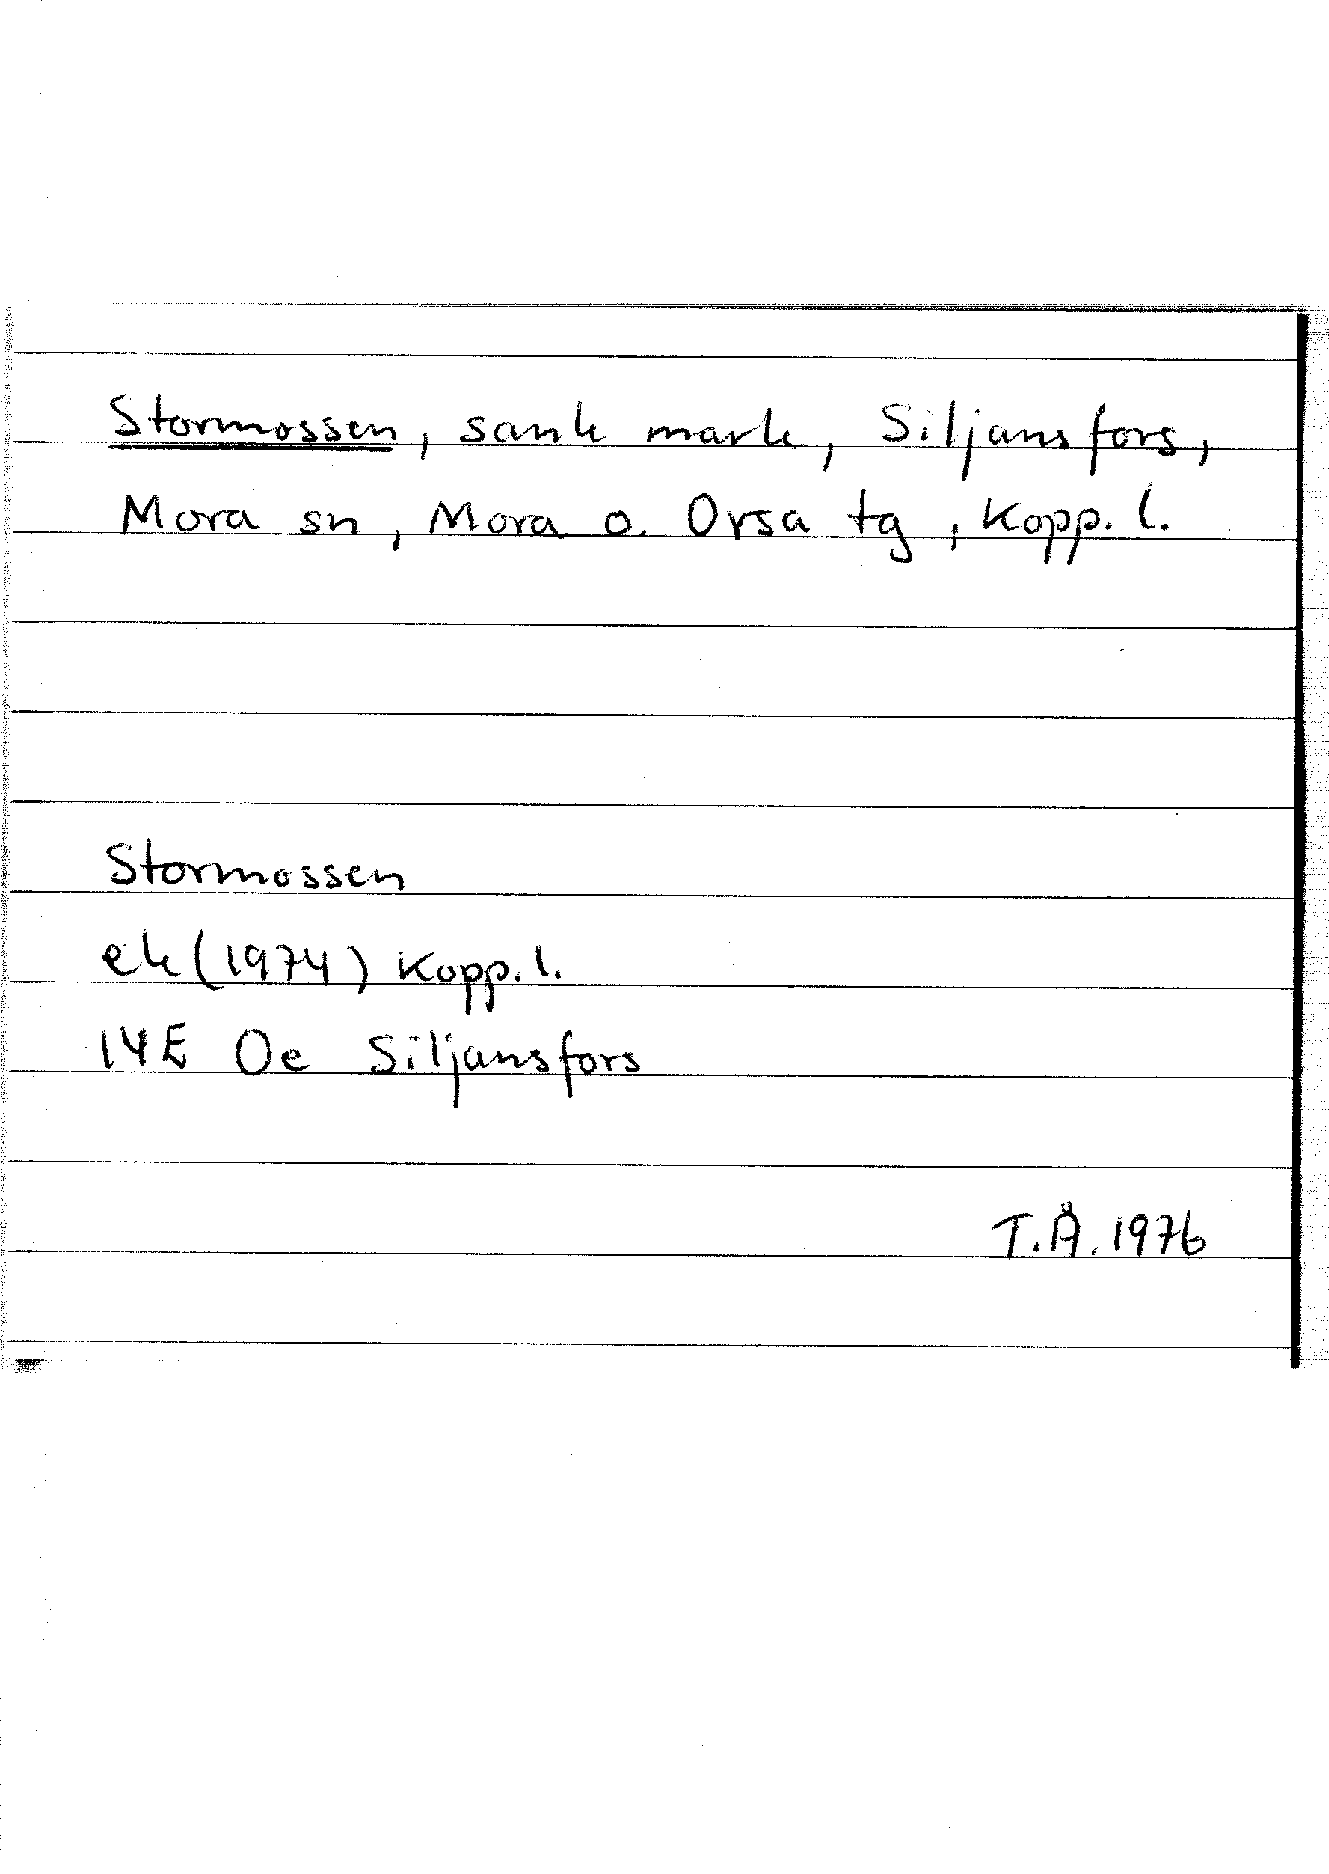 Stormossen, sank mark, Siljansfors,
Mora sn, Mora o. Orsa tg, Kopp. l.
Stormossen
ek (1974) Kopp. l.
14E Oe Siljansfors
T.Å. 1976